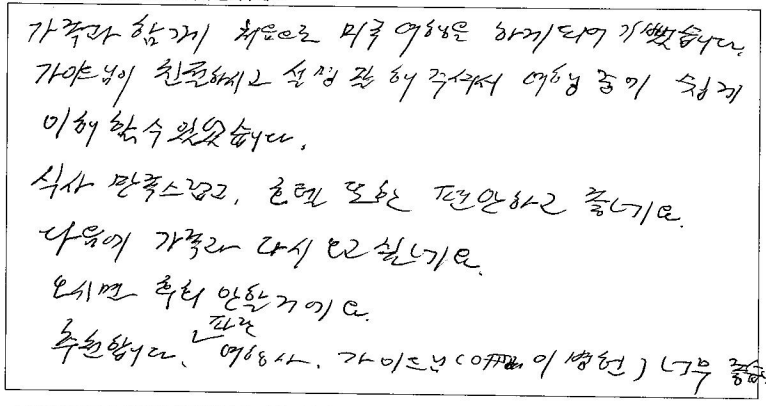 가족과 함께 처음으로 미국 여행을 하게되어 기뻤습니다.
가이드님이 친절하시고 설명 잘 해 주셔서 여행 중에 쉽게
이해 할 수 있었습니다.
식사 만족스럽고, 호텔 또한 편안하고 좋네요.
다음에 가족과 다시 오고 싶네요.
오시면 후회 안할거에요.
파란
추천합니다. 여행사. 가이드님( 이병헌) 너무 좋습